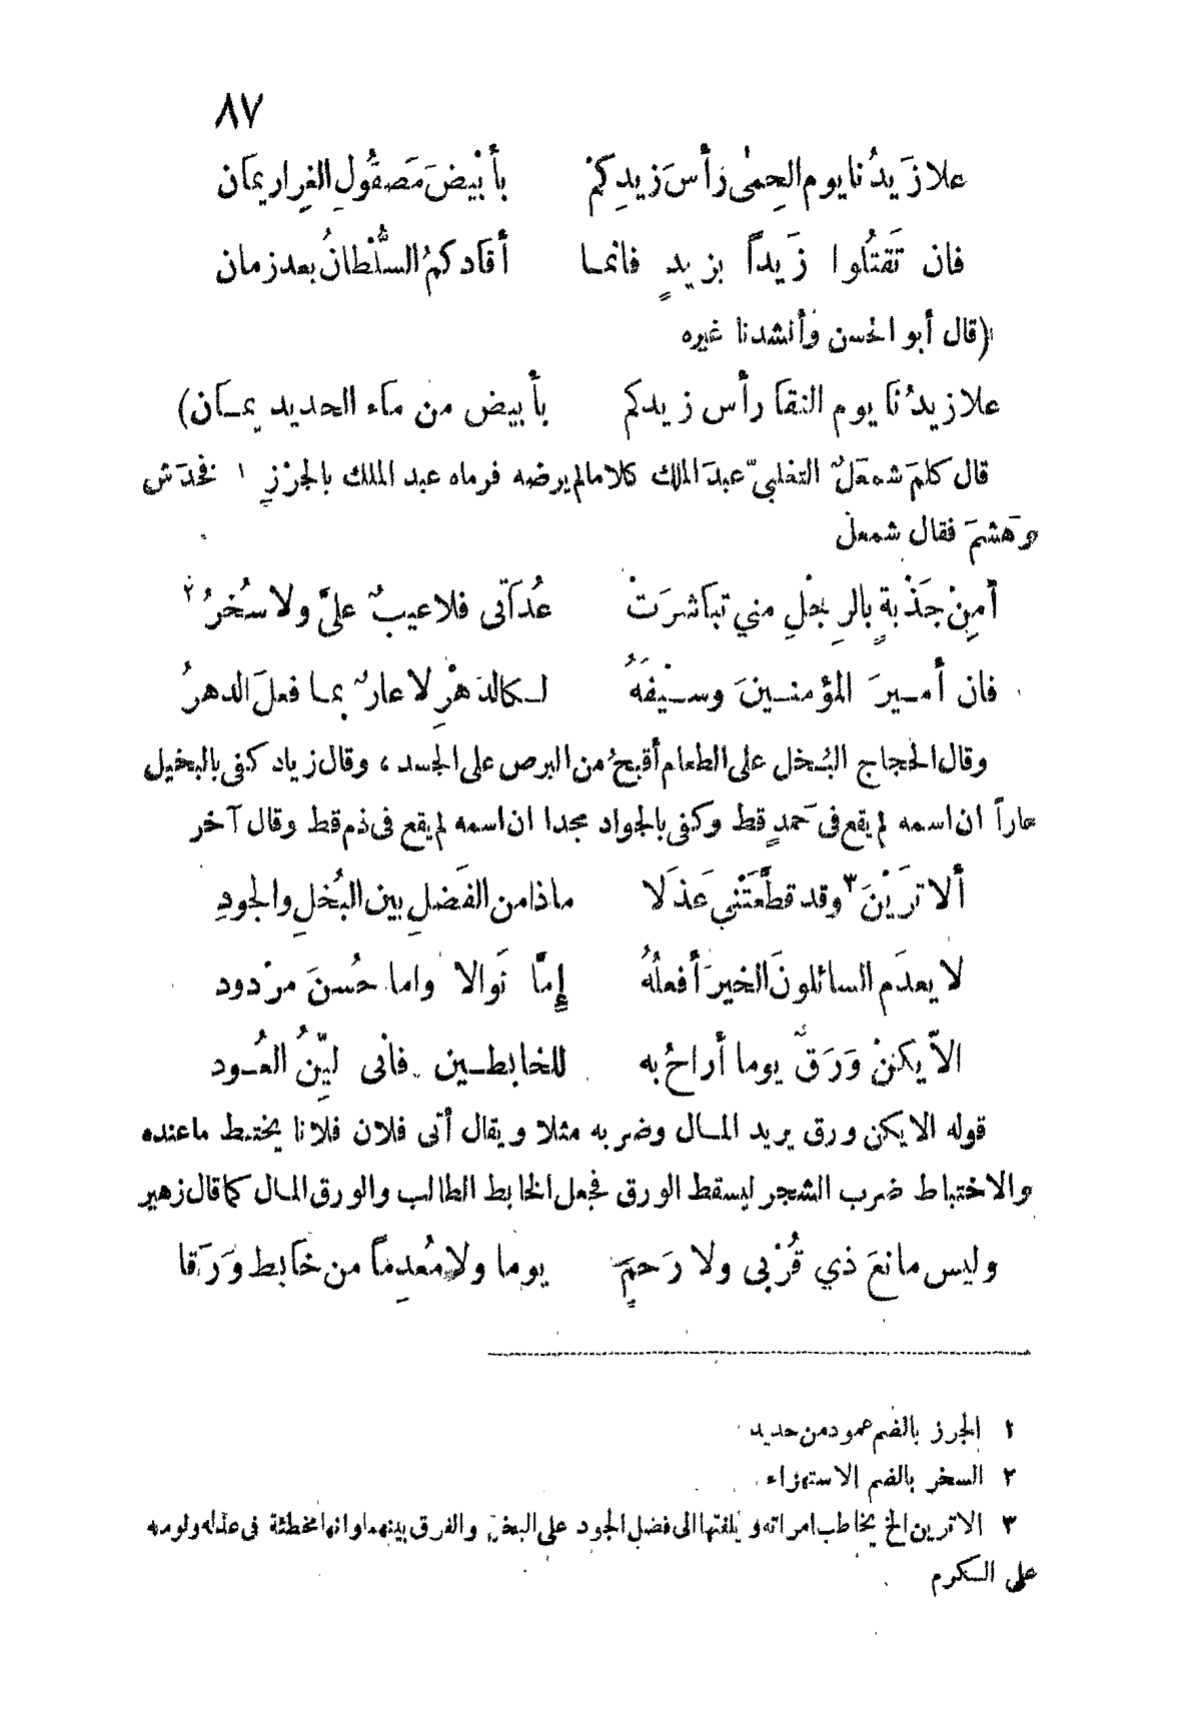 ٨٧
علا زَيدُنا يوم الحِمٰى رَأسَ زيدِكمْ بأبْيضَ مَصقُولِ الغِرار يمَان
فان تَقتُلوا زَيداً بزيدٍ فانما أقَادكمُ السُّلْطانُ بعد زمان
(قال أبو الحسن وأنشدنا غيره
علا زيدُنا يوم النقَا رأس زيدكم بأبيض من مَاء الحديد يمَان)
قال كلمَ شمعَلٌ التغلبيّ عبدَ الملك كلاما لم يرضه فرماه عبد الملك بالجرْزِ ١ فخدَش
وهَشمَ فقال شمعل
أمِنْ جَذْبةٍ بالرِجْلِ مني تبَاشرَتْ عُدَاتى فلا عيبٌ علىَّ ولا سُخرُ ٢
فان أميرَ المؤمنينَ وسيْفَهُ لكالدَهْرِ لا عارٌ بما فعلَ الدهرُ
وقال الحجاج البُخل على الطعام أقبحُ من البرص على الجسد ، وقال زياد كفى بالبخيل
عاراً ان اسمه لم يقع فى حَمدٍ قط وكفى بالجواد مجدا ان اسمه لم يقع فى ذم قط وقال آخر
ألا ترَيْنَ ٣ وقد قطَّعَتْنِي عَذَلا ماذا من الفَضلِ بين البُخلِ والجودِ
لا يعدَم السائلونَ الخيرَ أفعلُهُ إمَّا نَوالا واما حُسنَ مرْدود
الاّ يكنْ وَرَقٌ يوما أراحُ به للخابطين فانى ليّنُ العُود
قوله الا يكن ورق يريد المال وضربه مثلا ويقال أتى فلان فلانا يختبط ما عنده
والاختباط ضرب الشجر ليسقط الورق فجعل الخابط الطالب والورق المال كما قال زهير
وليس مانعَ ذي قُرْبى ولا رَحمٍ يوما ولا مُعدِمًا من خَابط وَرَقا
١ الجرز بالضم عمود من حديد
٢ السخر بالضم الاستهزاء
٣ الا ترين الخ يخاطب امراته ويلفتها الى فضل الجود على البخل والفرق بينهما وانها مخطئة فى عذله ولومه
على الكرم